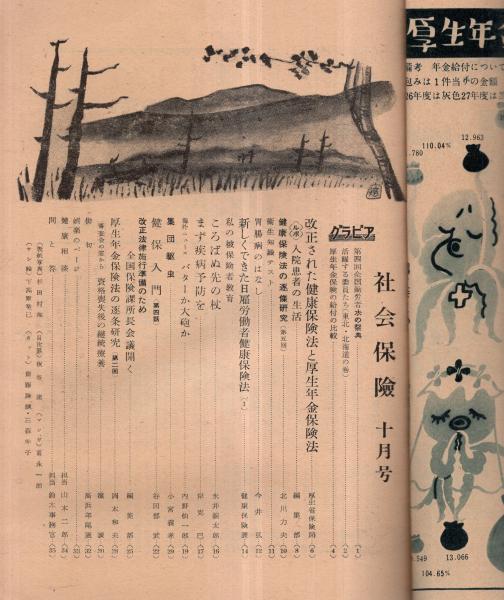 社会保険 十月号
グラビア
第四回全国勤労者水の祭典〔1〕
活躍する委員たち(東北・北海道の巻)〔2〕
厚生年金保険の給付の比較〔4〕
改正された健康保険法と厚生年金保険法 厚生省保険局〔6〕
(ルポ)入院患者の生活 編集部〔8〕
健康保険法の逐條研究(第五回) 北川力夫〔10〕
衛生知識テスト〔11〕
胃腸病のはなし 今井〔12〕
新しくできた日雇労働者健康保険法(1) 健康保険課〔14〕
私の被保険者教育
ころばぬ先の杖 永井鋹太郎〔16〕
まず疾病予防を 岸克巳〔17〕
海外ニュース バターか大砲か 内野仙一郎〔18〕
集団駆虫 小宮義孝〔19〕
健保入門(第四話) 谷田部武〔22〕
改正法律施行準備のため
全国保険課長会議開く 編集部〔25〕
厚生年金保険法の逐条研究 第二回 岡本和夫〔28〕
審査会の窓から 資格喪失後の継続療養 瀧誠〔31〕
俳句 高浜年尾選〔32〕
娯楽のページ〔33〕
健康相談 担当 山本二郎〔34〕
問と答 担当 鈴木事務官〔35〕
厚生年
備考 年金給付につい
包みは1件当りの金額
26年度は灰色27年度は
110.04%
12.963
.760
.549
13.066
104.65%